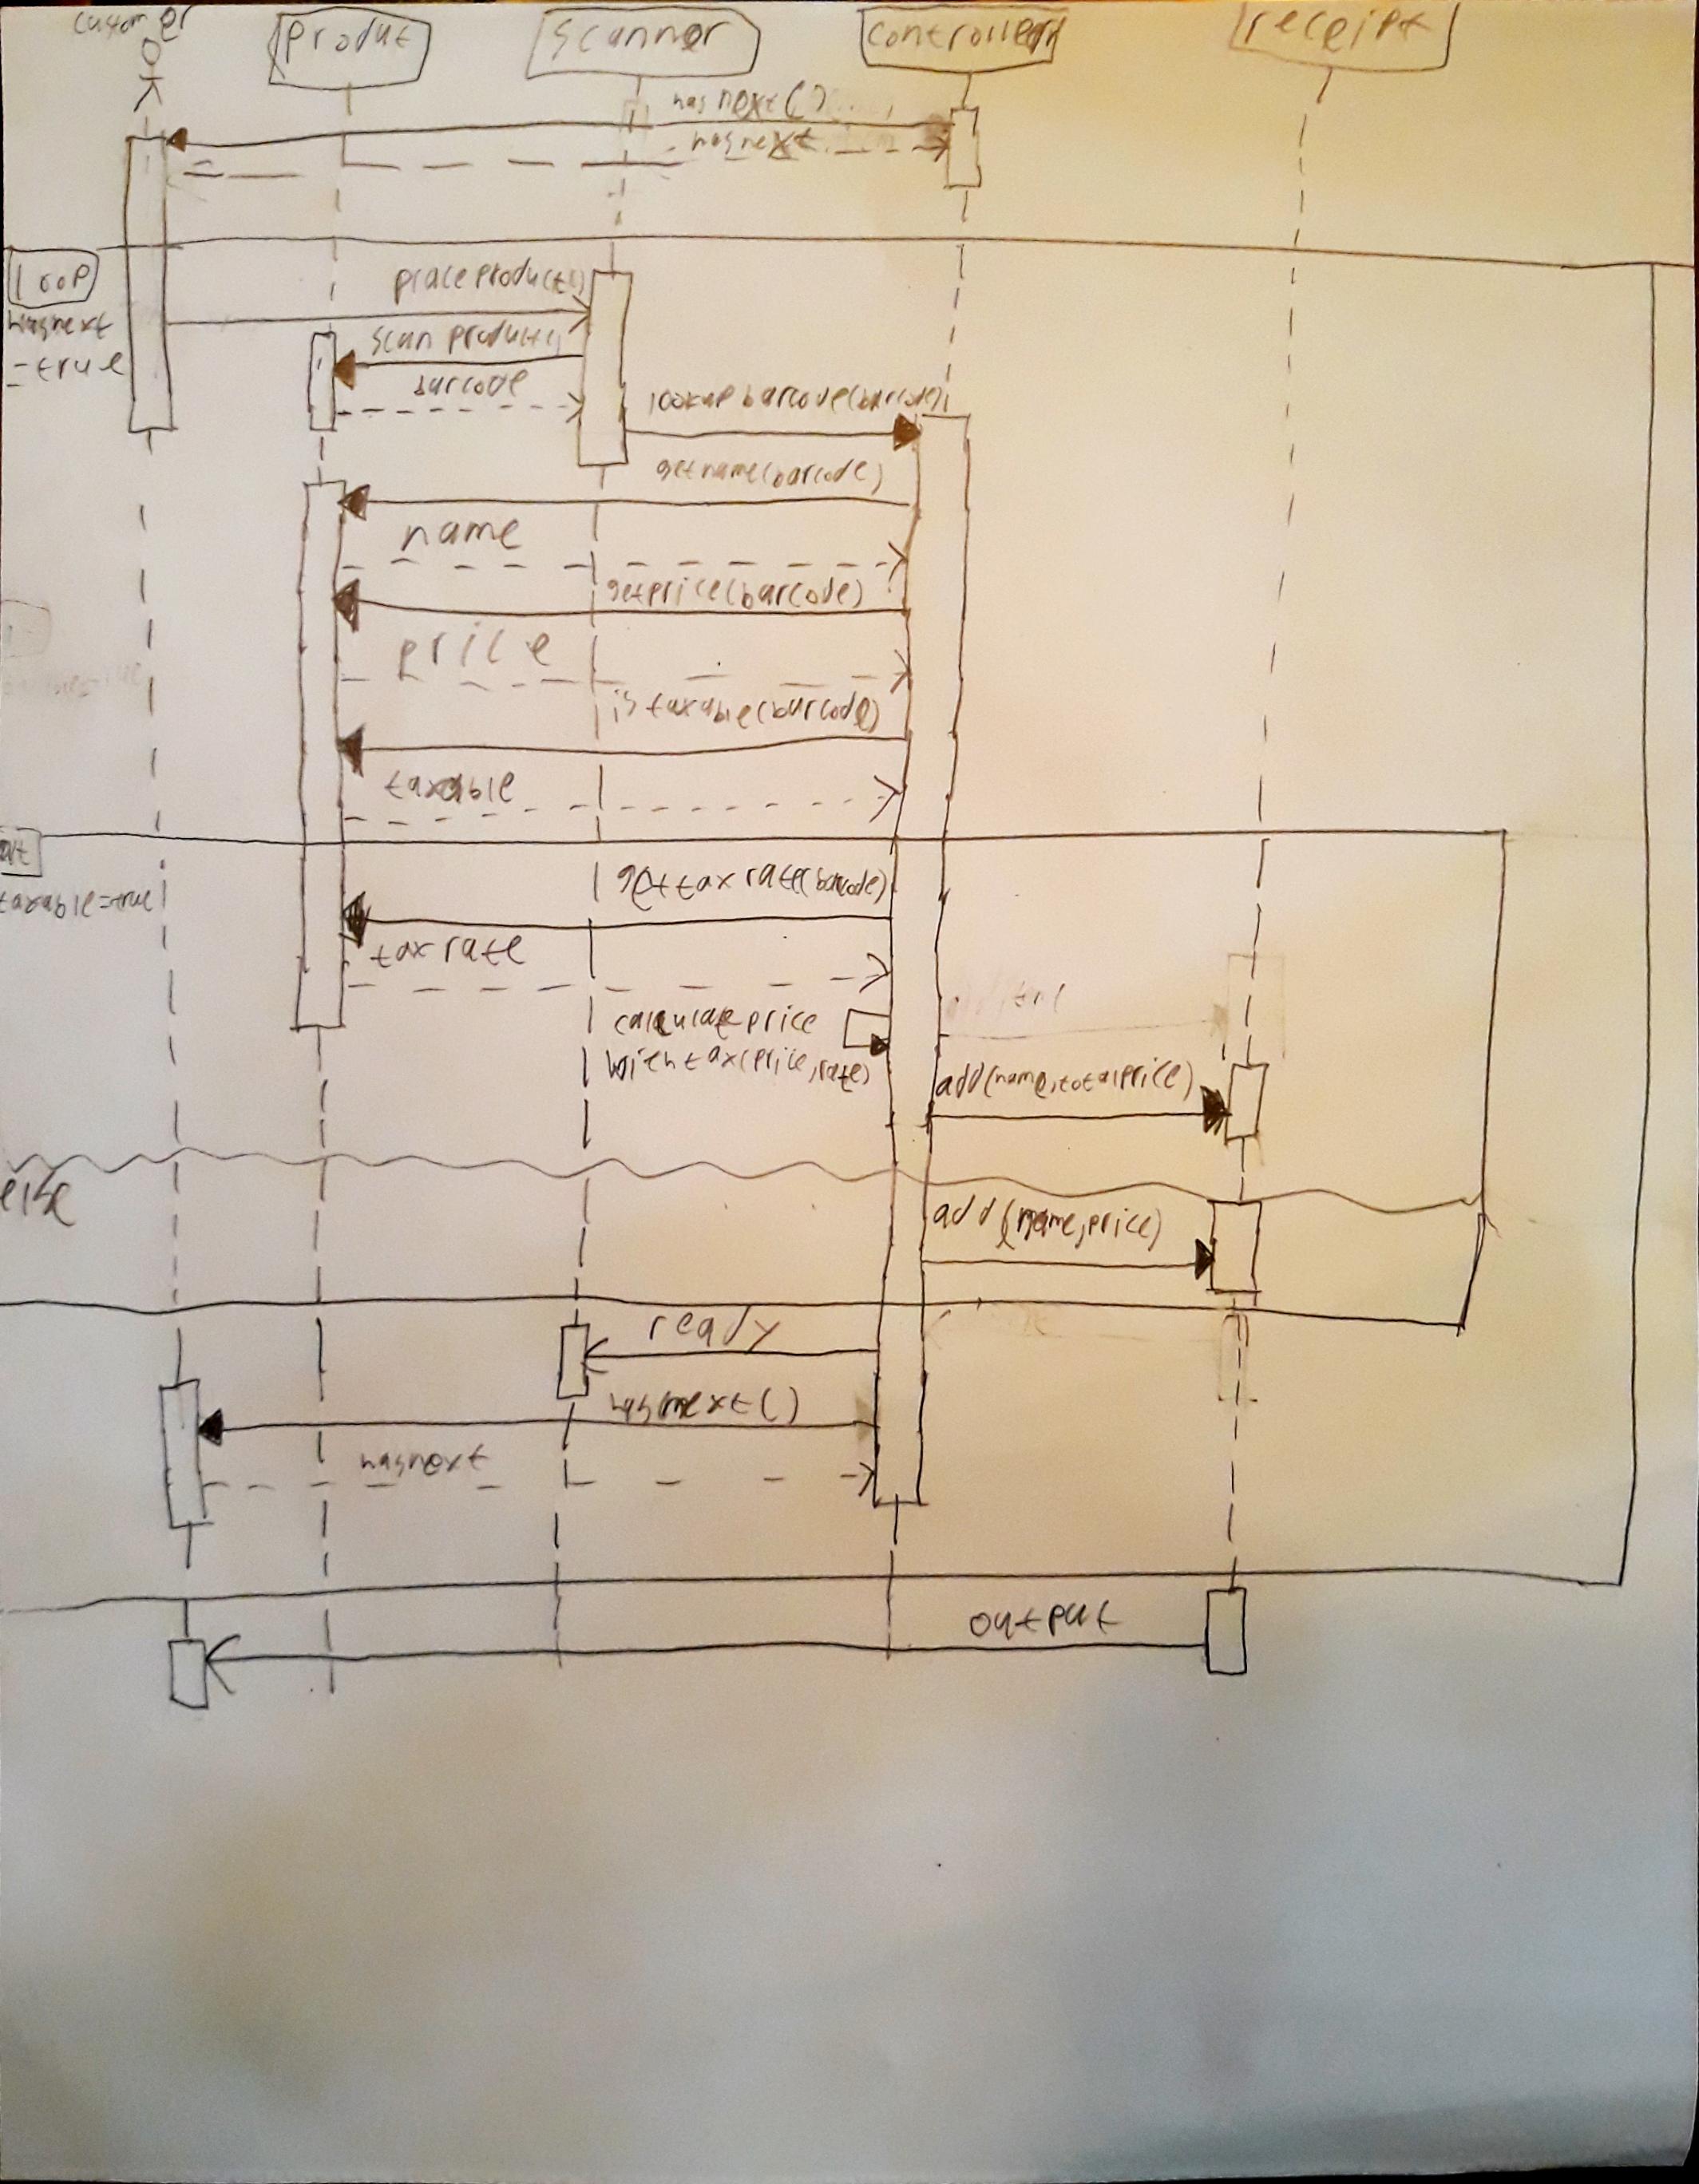 customer
produt
scanner
controller
receipt
hasnext()
hasnext
loop
hasnext
=true
placeproduct()
scan product()
barcode
lookup barcode(barcode)
getname(barcode)
name
getprice(barcode)
price
is taxable(barcode)
taxable
alt
taxable=true
get tax rate(barcode)
tax rate
calculate price
with tax(price,rate)
add(name,totalprice)
else
add(name,price)
ready
hasnext()
hasnext
output